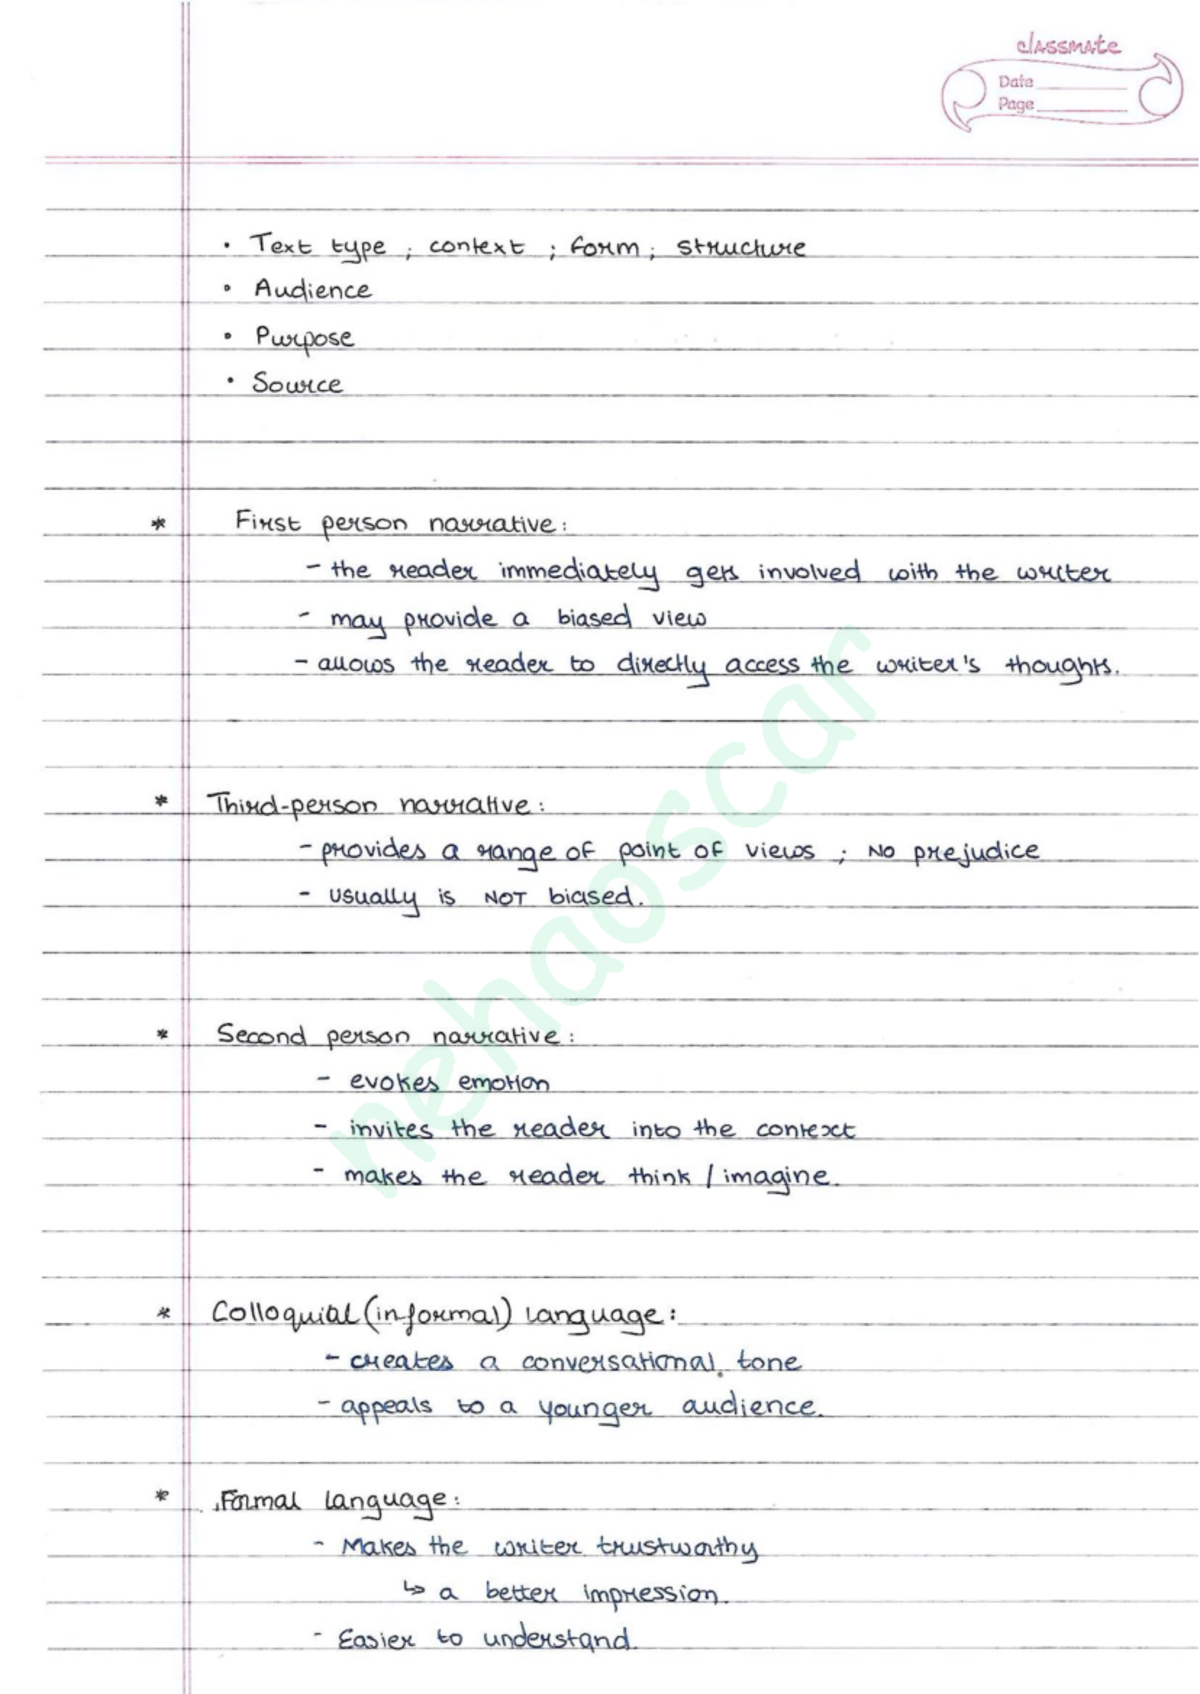 classmate
Date
Page
• Text type ; context ; form ; structure
• Audience
• Purpose
• Source
* First person narrative:
- the reader immediately gets involved with the writer
- may provide a biased view
- allows the reader to directly access the writer's thoughts.
* Third-person narrative:
- provides a range of point of views ; NO prejudice
- usually is NOT biased.
* Second person narrative:
- evokes emotion
- invites the reader into the context
- makes the reader think / imagine.
* Colloquial (informal) language:
- creates a conversational tone
- appeals to a younger audience.
* Formal language:
- Makes the writer trustworthy
↳ a better impression.
- Easier to understand.
nehaoscar